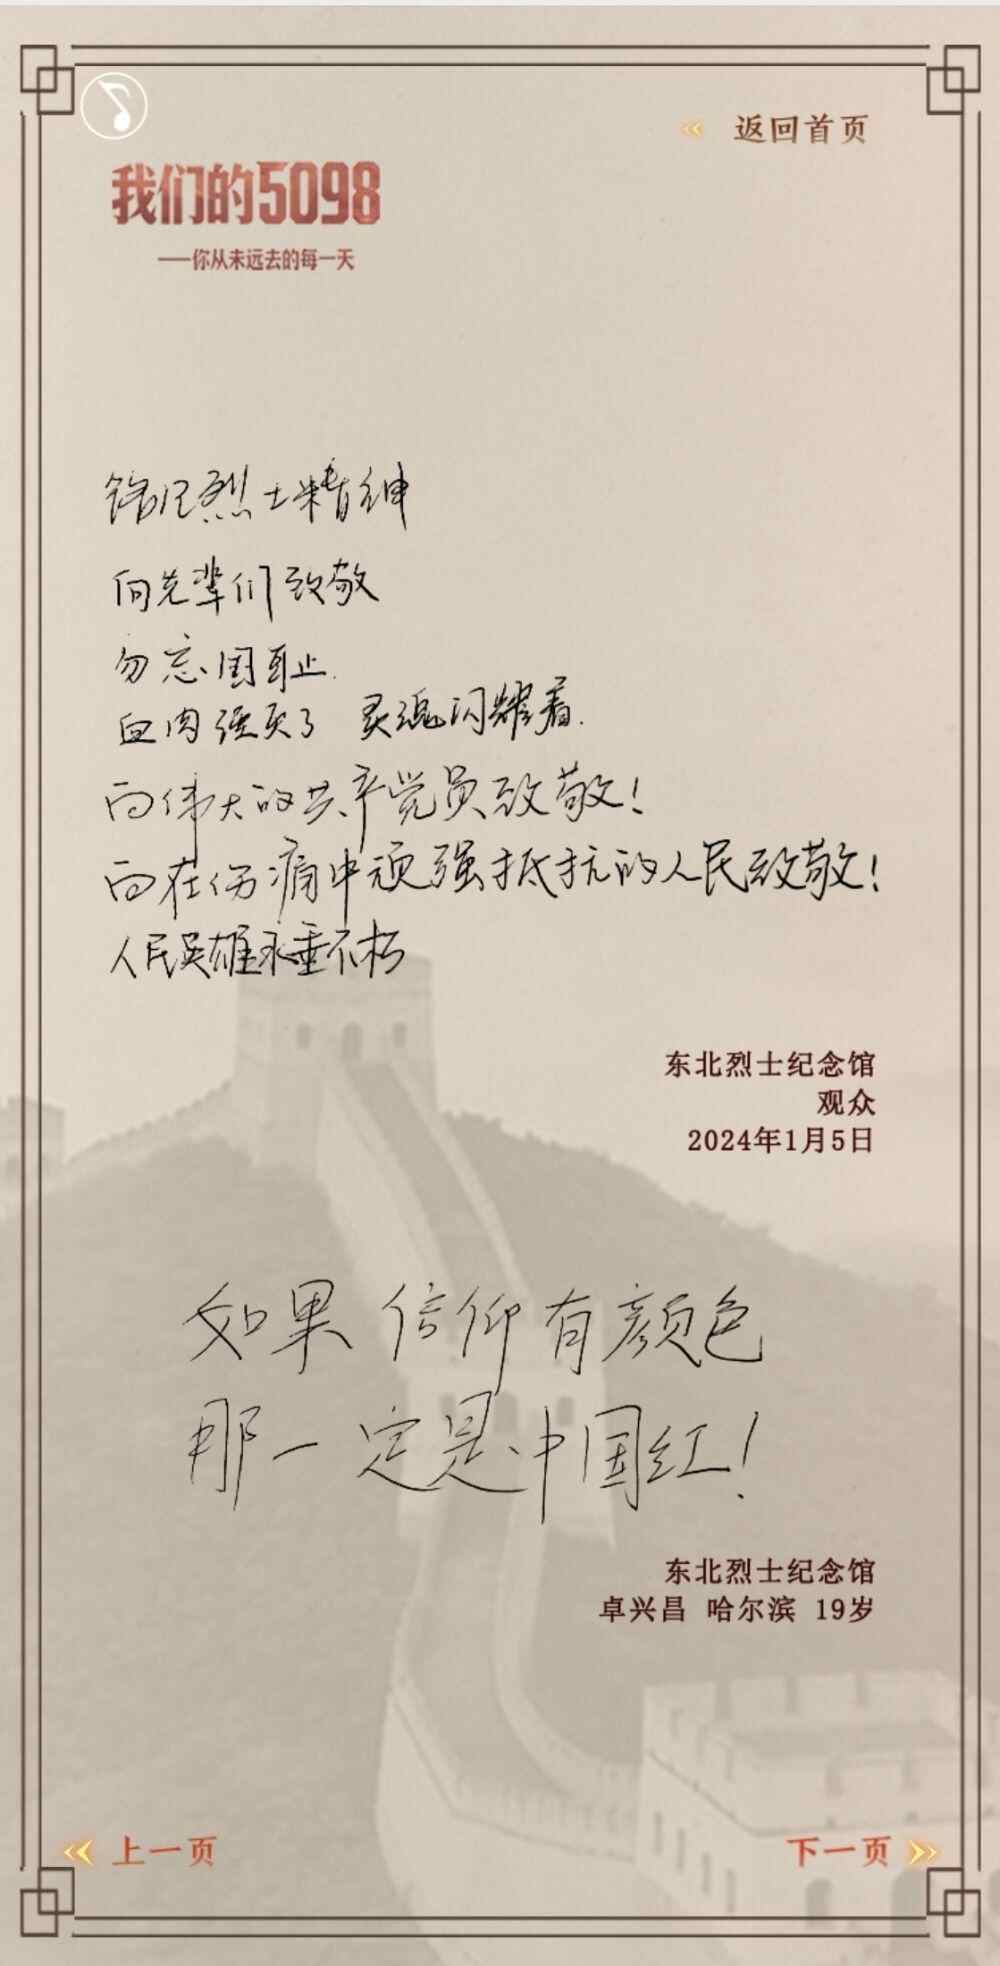 返回首页
我们的5098
——你从未远去的每一天
铭记烈士精神
向先辈们致敬
勿忘国耻.
血肉湮灭了 灵魂闪耀着.
向伟大的共产党员致敬！
向在伤痛中顽强抵抗的人民致敬！
人民英雄永垂不朽
东北烈士纪念馆
观众
2024年1月5日
如果信仰有颜色
那一定是中国红！
东北烈士纪念馆
卓兴昌 哈尔滨 19岁
上一页
下一页